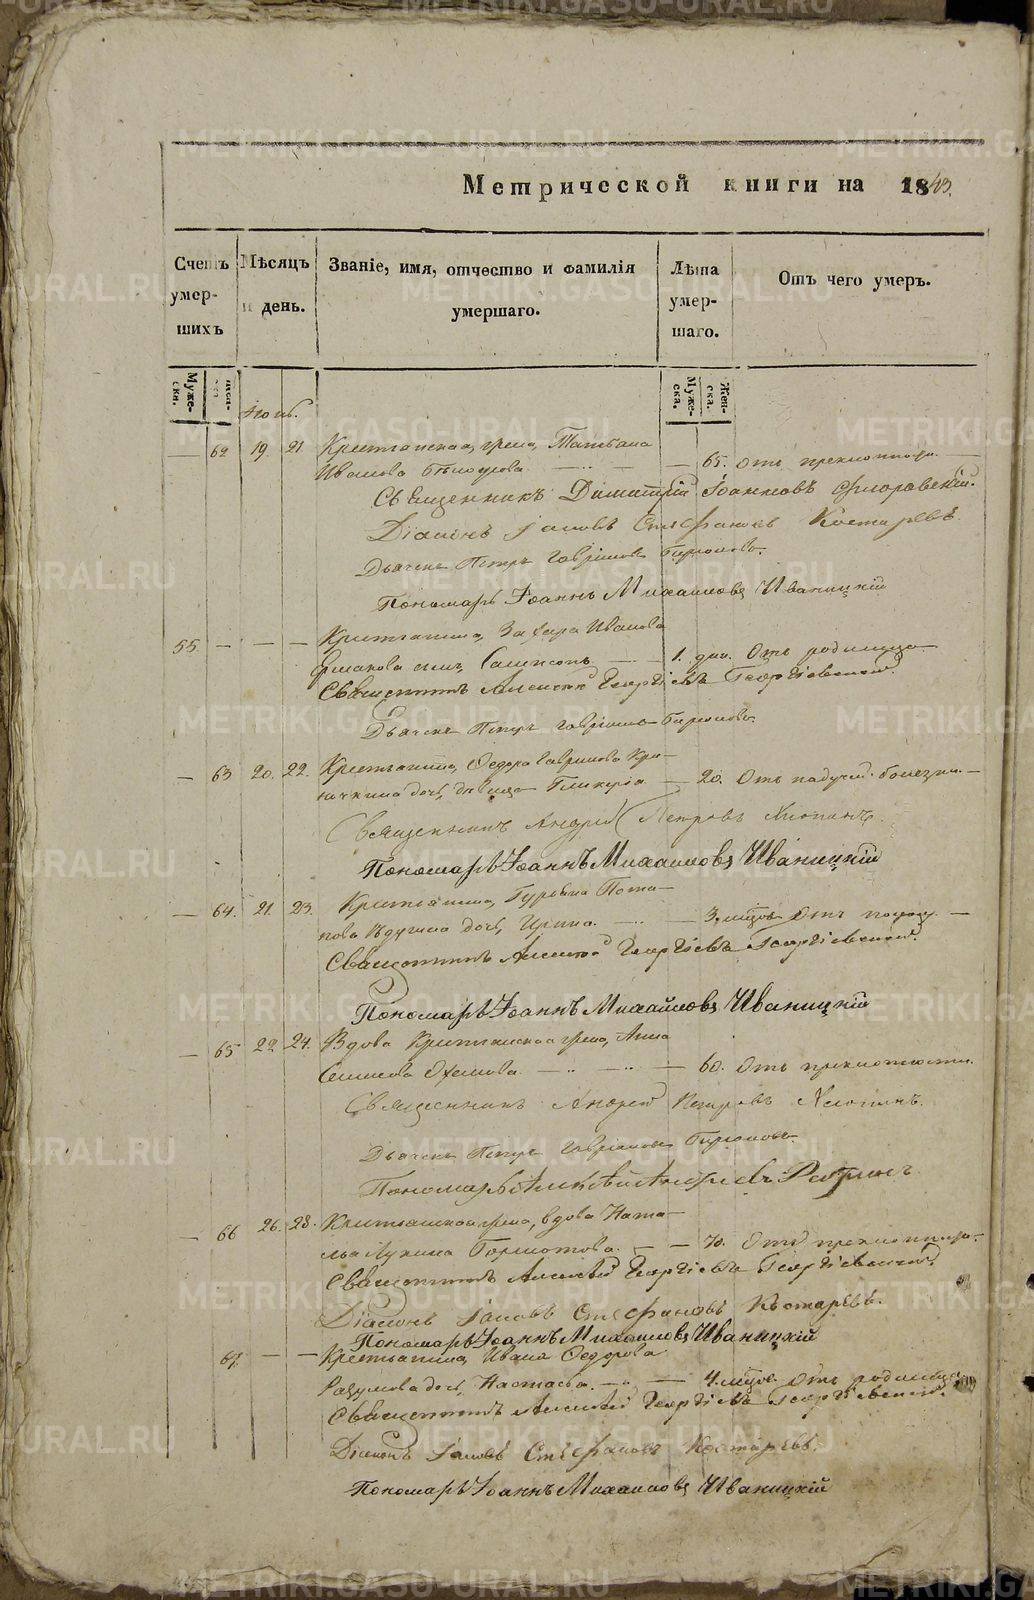 Метрической книги на 1843.
Счетъ умершихъ
Мѣсяцъ и день.
Званіе, имя, отчество и фамилія умершаго.
Лѣта умершаго.
Отъ чего умеръ.
Мужески. Женски
Мужеска. Женска.
62 19. 21 Крестьянская жена, Татьяна
Иванова — — 65. Отъ
Священникъ Димитрій Іоанновъ Флоровскій.
Діаконъ Іаковъ Стефановъ Костаревъ.
Дьячекъ Петръ Гавріиловъ Бирюковъ.
Пономарь Іоаннъ Михаиловъ Иваницкій
55. — — — Крестьянина, Захара Иванова
Ермакова сынъ, Сампсонъ — 1. дня. Отъ родимца —
Священникъ Алексій Георгіевъ Георгіевскій.
Дьячекъ Петръ Гавріиловъ Бирюковъ.
— 63 20. 22. Крестьянина, Ѳедора Гаврилова
дочь, дѣвица Гликерія — 20. Отъ падучей болезни. —
Священникъ Андрей Петровъ Хлопинъ.
Пономарь Іоаннъ Михаиловъ Иваницкій
— 64. 21. 23. Крестьянина, Гурьяна Пота-
пова дочь, Ирина. — — 3. мѣсяц. Отъ поносу. —
Священникъ Алексій Георгіевъ Георгіевскій.
Пономарь Іоаннъ Михайловъ Иваницкій
— 65 22 24. Вдова Крестьянская жена, Анна
Семенова — — — 60. Отъ
Священникъ Андрей Петровъ Хлопинъ.
Дьячекъ Петръ Гавріиловъ Бирюковъ.
Пономарь
— 66 26. 28. Крестьянская жена, вдова Ната-
лья Лукина — — 70. Отъ
Священникъ Алексій Георгіевъ Георгіевскій.
Діаконъ Іаковъ Стефановъ Костаревъ.
Пономарь Іоаннъ Михаиловъ Иваницкій
67. — — Крестьянина, Ивана Ѳедорова
дочь, Настасья. — — 4. мѣсяц. Отъ родимца
Священникъ Алексій Георгіевъ Георгіевскій.
Діаконъ Іаковъ Стефановъ Костаревъ.
Пономарь Іоаннъ Михаиловъ Иваницкій
METRIKI.GASO-URAL.RU